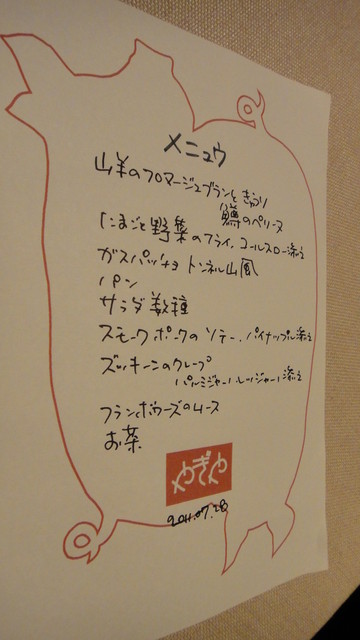 メニュウ
山羊のフロマージュブランときゅうり
鱒のベリーヌ
たまごと野菜のフライ、コールスロー添え
ガスパッチョ トンネル山風
パン
サラダ数種
スモークポークのソテー、パイナップル添え
ズッキーニのクレープ
パルミジャーノレッジャーノ添え
フランボワーズのムース
お茶
やぎや
2011.07.28